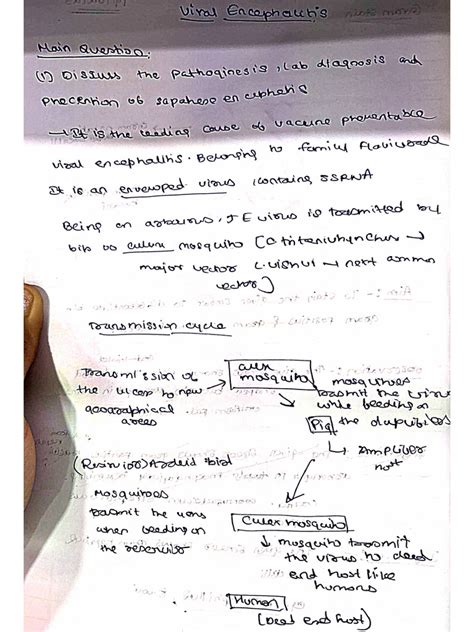 Viral Encephalitis
Main Question:
(1) Discuss the pathoginesis, Lab diagnosis and
prevention of Japanese encephalitis
→ It is the leading cause of vaccine preventable
viral encephalitis. Belonging to family
It is an enveloped virus, contains SSRNA
Being an arbovirus, JE virus is transmitted by
bite of culex mosquito [C.tritaeniorhynchus →
major vector C.vishnui → next common
vector]
Transmission cycle
Transmission of
the virus to new
geographical
areas
culex
mosquito
mosquitoes
transmit the virus
while feeding on
Pig the
↳ Amplifier
host
(Reservior) Ardeid bird
Mosquitoes
transmit the virus
when feeding on
the reservior
Culex mosquito
↓ mosquito transmit
the virus to dead
end host like
humans
Human
(Dead end host)